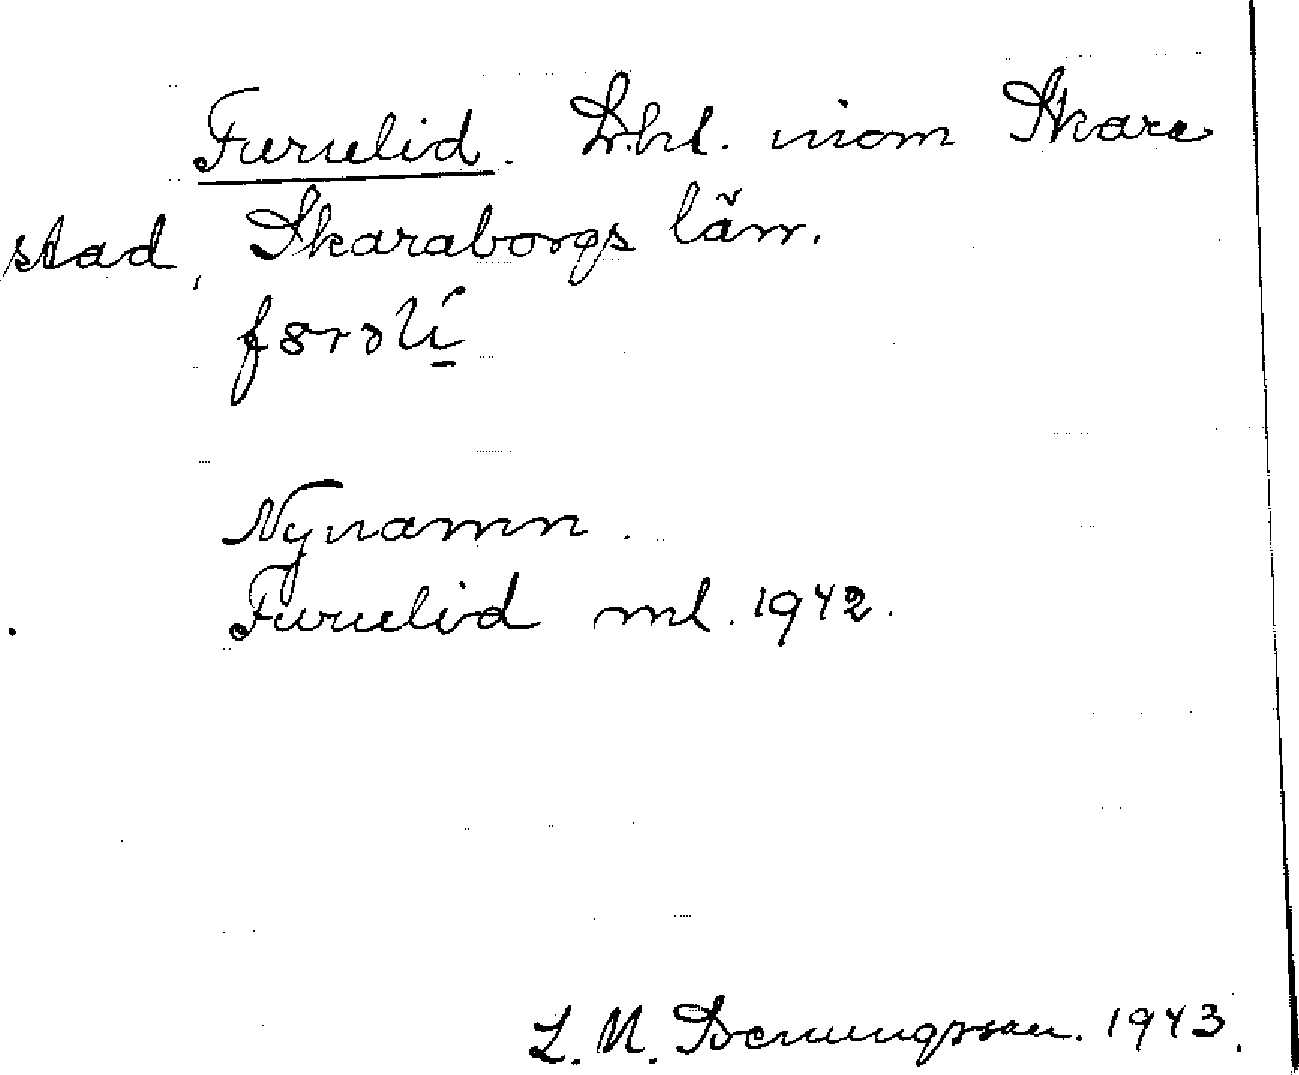 Furulid. Lht. inom Skara
stad, Skaraborgs län.
Nynamn.
Furulid ml. 1942.
L. M. 1943.